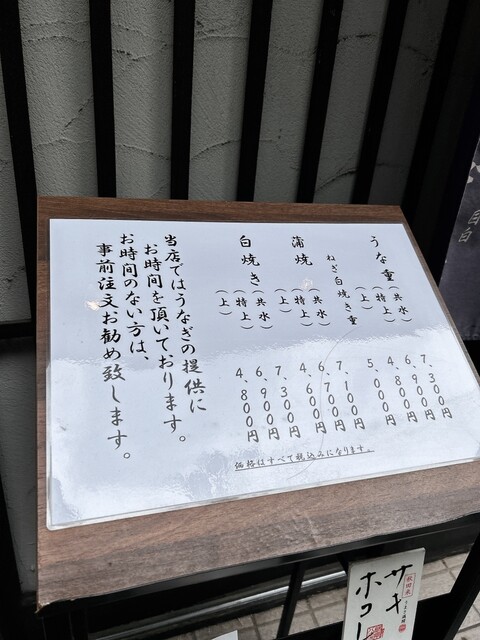 うな重(共水) 7、300円
(特上) 6、900円
(上) 4、800円
ねぎ白焼き重 5、000円
蒲焼(共水) 7、100円
(特上) 6、700円
(上) 4、600円
白焼き(共水) 7、300円
(特上) 6、900円
(上) 4、800円
当店ではうなぎの提供に
お時間を頂いております。
お時間のない方は、
事前注文お勧め致します。
価格はすべて税込みになります。
秋田米
サキ
ホコレ
目白